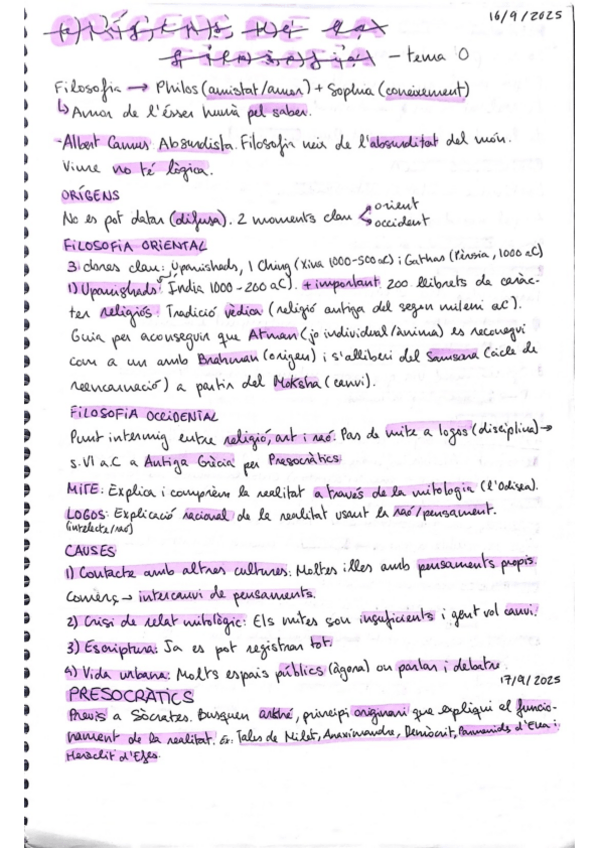 16/9/2025
ORÍGENS DE LA
filosofia - tema 0
Filosofia → Philos (amistat/amor) + Sophia (coneixement)
↳ Amor de l'ésser humà pel saber.
- Albert Camus: Absurdista. Filosofia neix de l'absurditat del món.
Viure no té lògica.
ORÍGENS
No es pot datar (difusa). 2 moments clau < orient
occident
FILOSOFIA ORIENTAL
3 obres clau: Upanishads, I Ching (Xina 1000-500 aC) i Gathas (Pèrsia, 1000 aC)
1) Upanishads: Índia 1000-200 aC). + important. 200 llibrets de caràc-
ter religiós. Tradició vèdica (religió antiga del segon mileni aC).
Guia per aconseguir que Atman (jo individual/ànima) es reconegui
com a un amb Brahman (origen) i s'alliberi del Samsara (cicle de
reencarnació) a partir del Moksha (canvi).
FILOSOFIA OCCIDENTAL
Punt intermig entre religió, art i raó. Pas de mite a logos (disciplina) →
s. VI a.C a Antiga Grècia per Presocràtics
MITE: Explica i comprèn la realitat a través de la mitologia (l'Odisea).
LOGOS: Explicació racional de la realitat usant la raó/pensament.
(intelecte/raó)
CAUSES
1) Contacte amb altres cultures: Moltes illes amb pensaments propis.
Comerç → intercanvi de pensaments.
2) Crisi de relat mitològic: Els mites son insuficients i gent vol canvi.
3) Escriptura: Ja es pot registrar tot.
4) Vida urbana: Molts espais públics (àgora) on parlar i debatre.
17/9/2025
PRESOCRÀTICS
Previs a Sòcrates. Busquen arkhé, principi originari que expliqui el funcio-
nament de la realitat. Ex: Tales de Milet, Anaximandre, Demòcrit, Parmenids d'Elea i
Heraclit d'Efes.